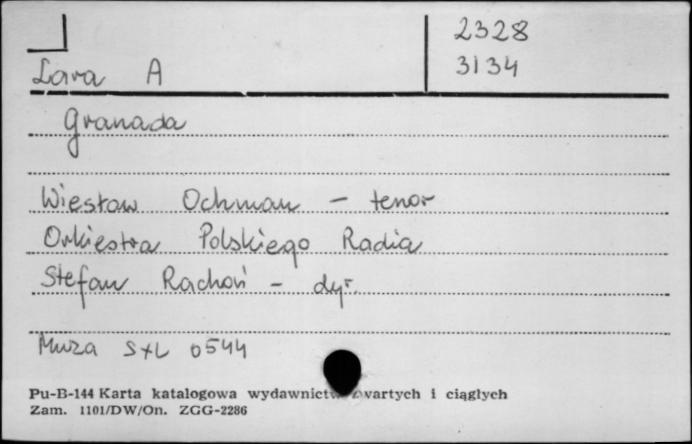 2328
Lara A
3134
Granada
Wiesław Ochman - tenor
Orkiestra Polskiego Radia
Stefan Rachoń - dyr.
Muza SXL 0544
Pu-B-144 Karta katalogowa wydawnictw zwartych i ciągłych
Zam. 1101/DW/On. ZGG-2286